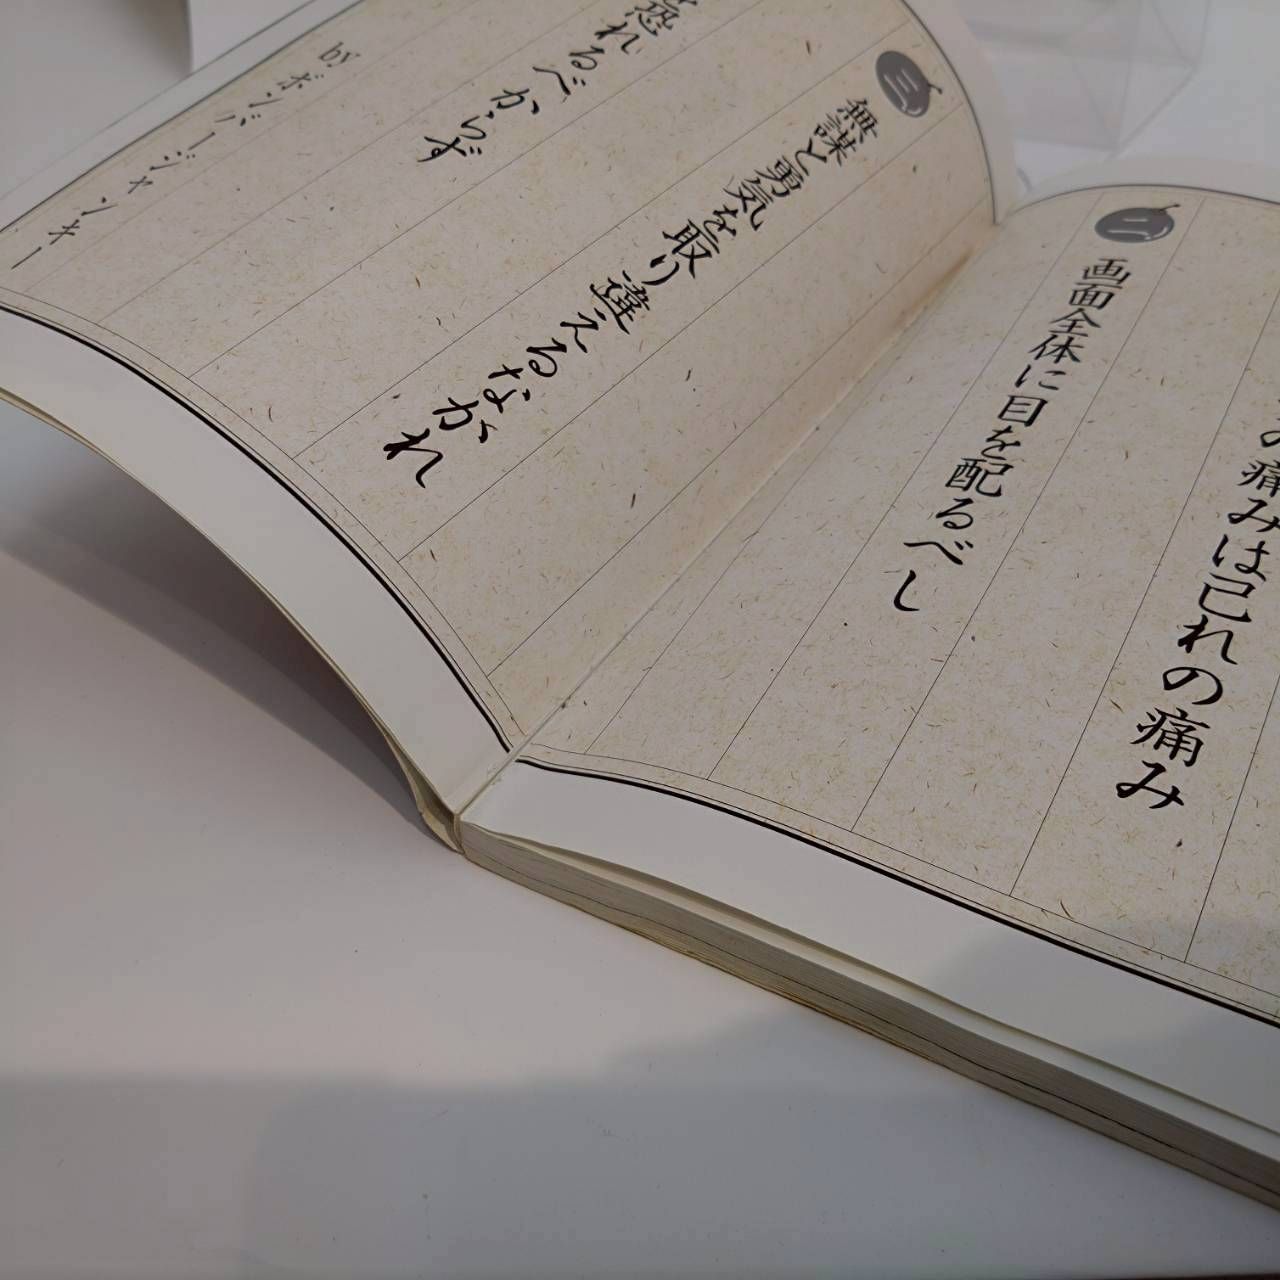 の痛みは己れの痛み
二
画面全体に目を配るべし
三
無謀と勇気を取り違えるなかれ
恐れるべからず
byボンバージャンキー